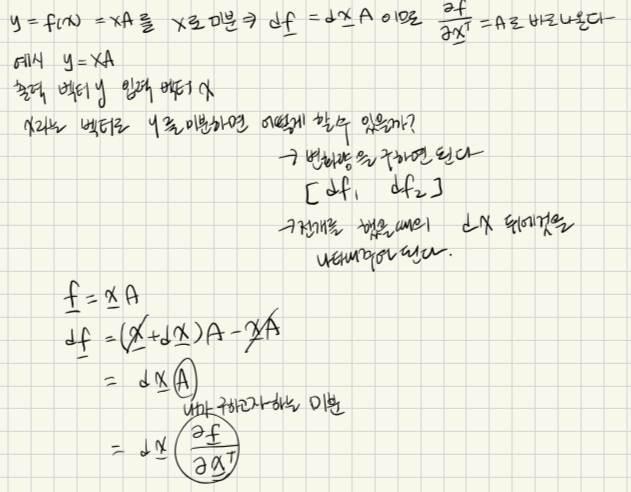 y = f(x) = xA를 x로 미분 → df = dx A 이므로 ∂f/∂xᵀ = A로 바로나온다
예시 y = xA
출력 벡터 y 입력 벡터 x
x라는 벡터로 y를 미분하면 어떻게 할 수 있을까?
→ 변화량을 구하면 된다
[ df₁ df₂ ]
→ 전개를 했을때의 dx 뒤에것을
된다.
f = xA
df = (x+dx)A - xA
= dx A
내가 구하고자하는 미분
= dx ∂f/∂xᵀ